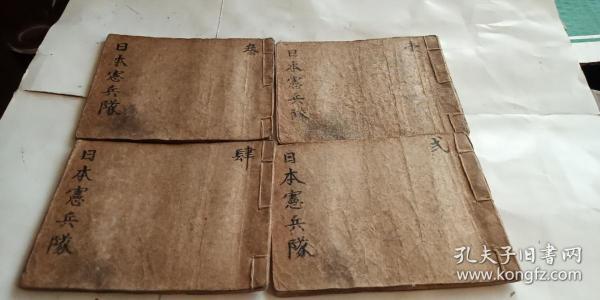 日本憲兵隊
叁
日本憲兵隊
日本憲兵隊
肆
日本憲兵隊
弍
孔夫子旧书网
www.kongfz.com